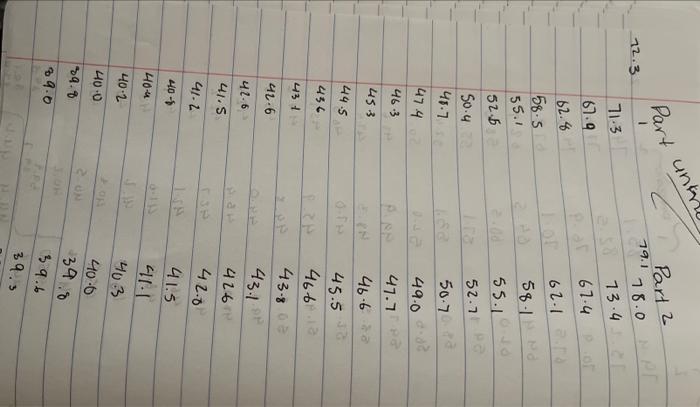 Part 1 Part 2
72.3 79.1 78.0
71.3 73.4
67.9 67.4
62.8 62.1
58.5 58.1
55.1 55.1
52.6 52.7
50.4 50.7
48.7 49.0
47.4 47.7
46.3 46.6
45.3 45.5
44.5 46.6
43.6 43.8
43.1 43.1
42.6 42.6
42.6 42.0
41.5 41.5
41.2 41.1
40.8 40.3
40.4 40.0
40.2 39.8
40.0 39.6
39.8 39.3
39.0